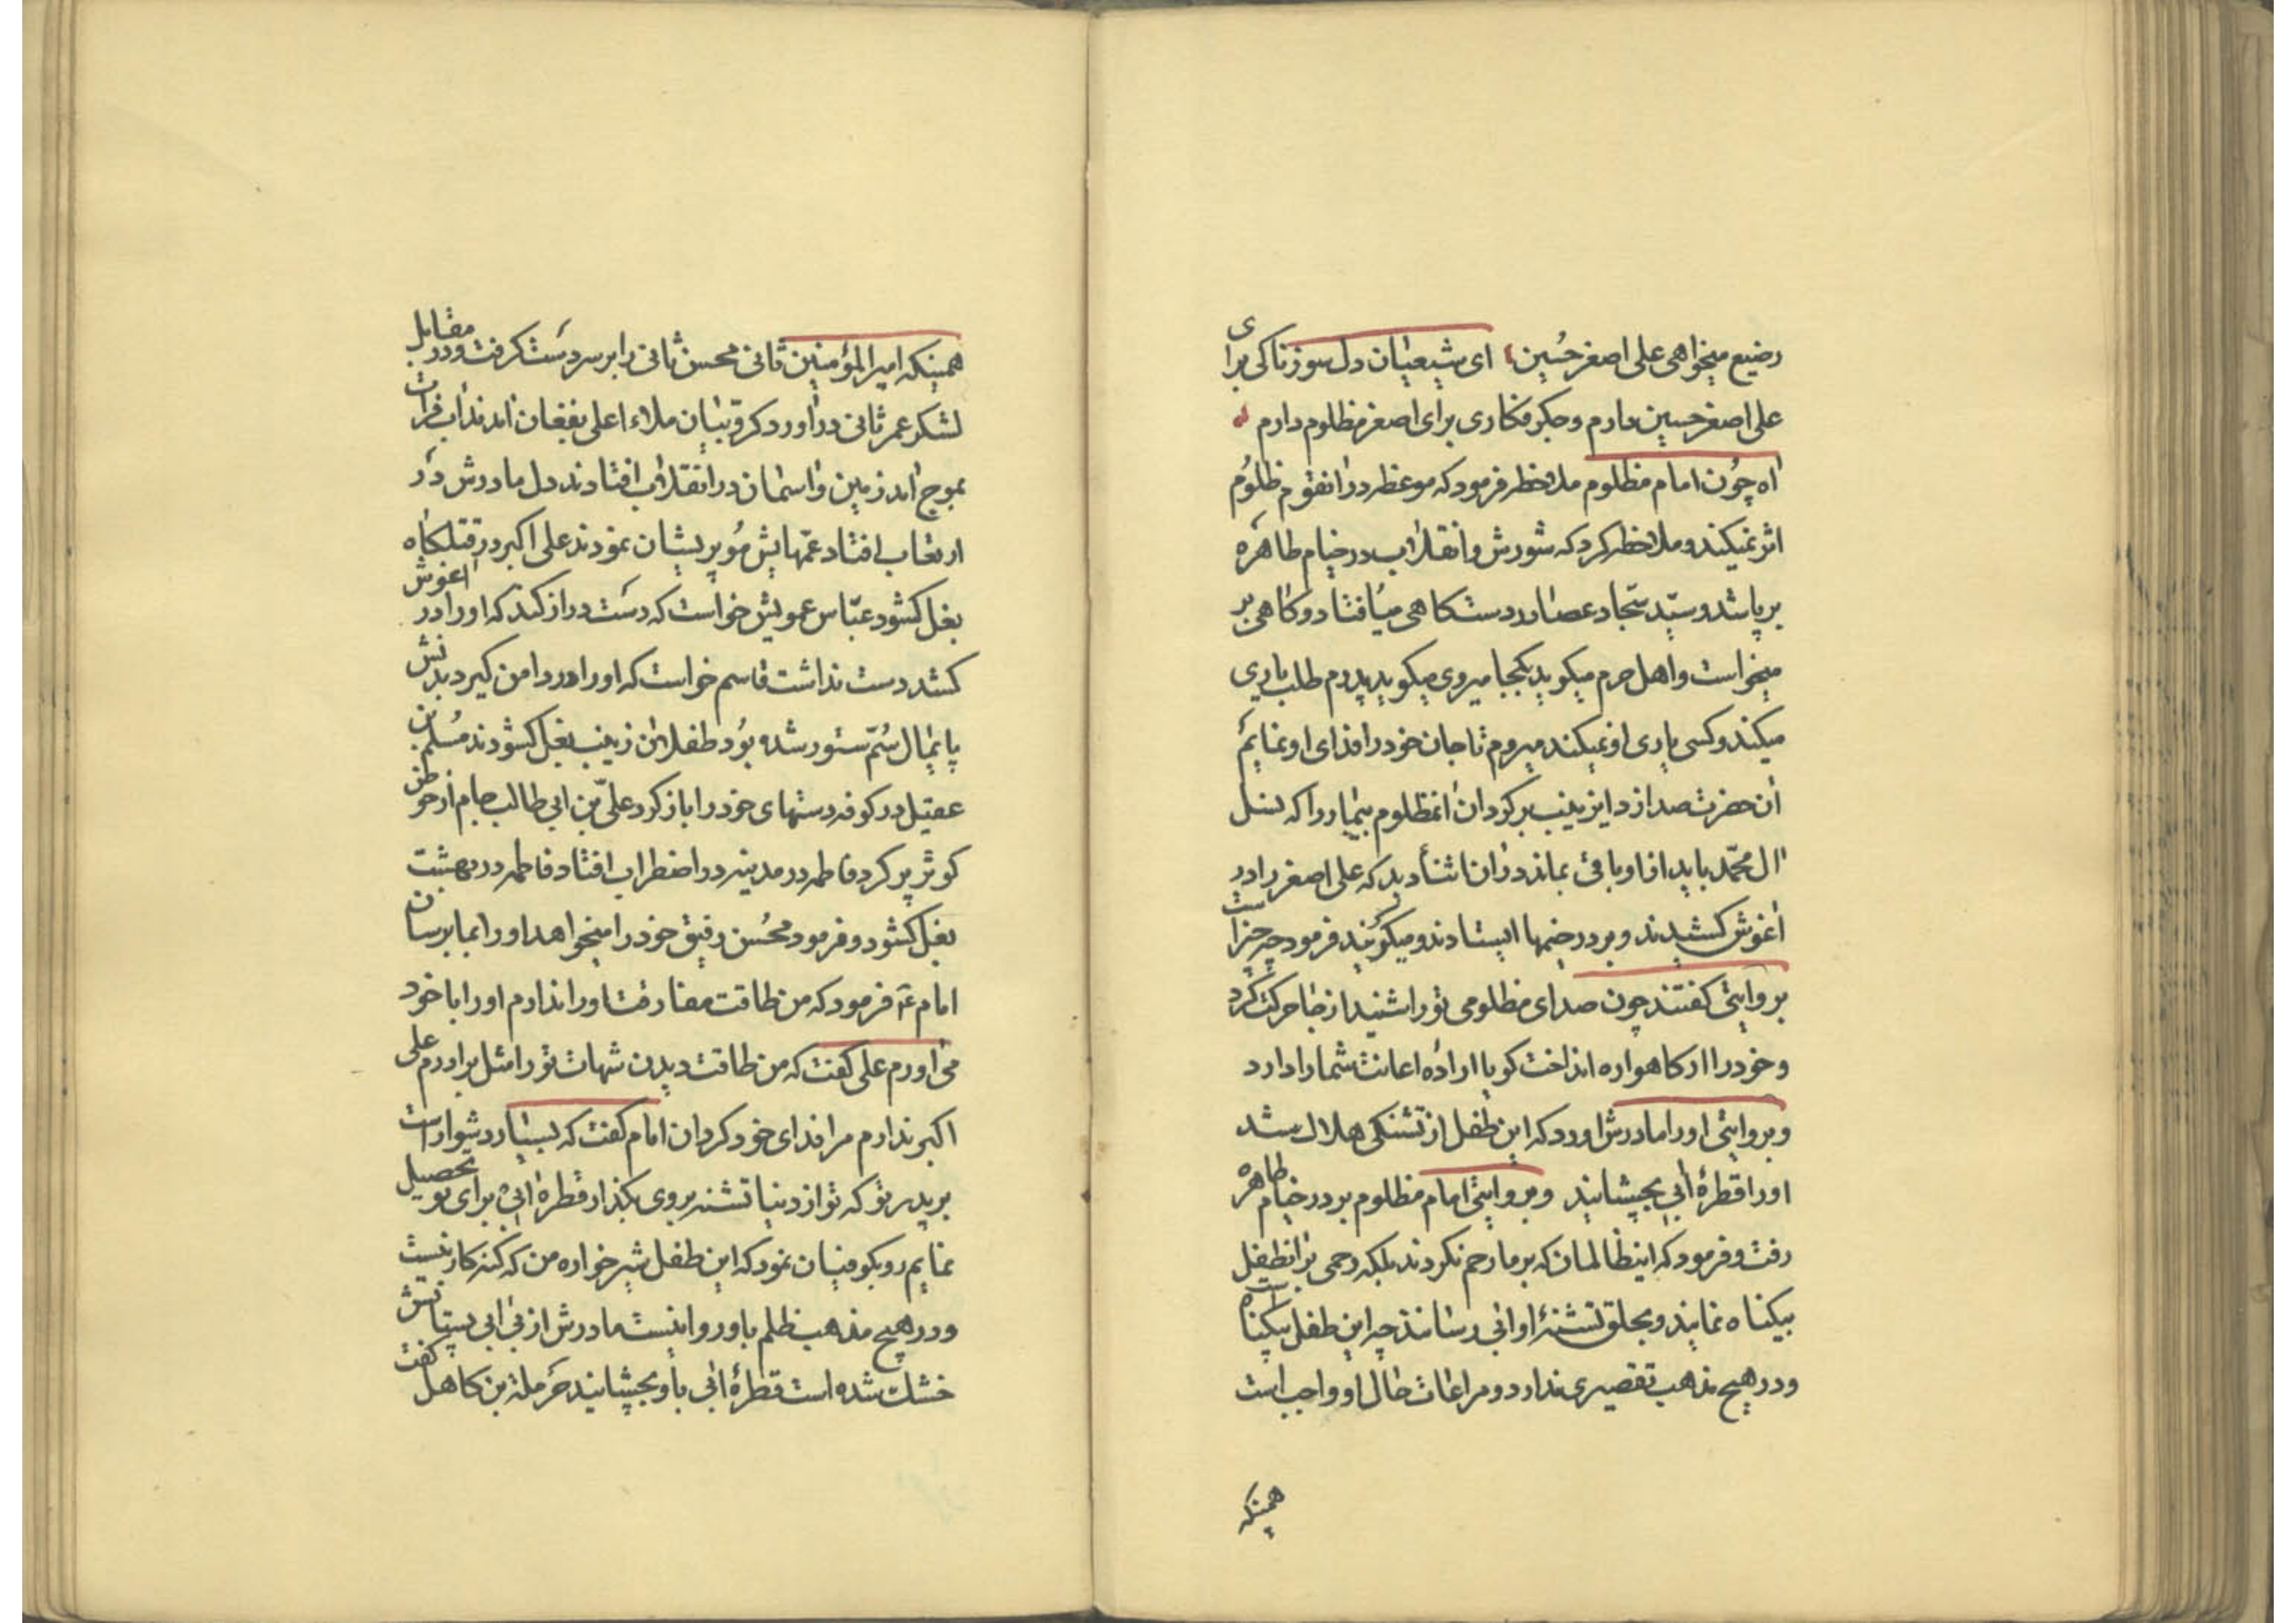 رضیع میخواهی علی اصغر حُسین ای شیعیان دل سوزناکی برای
علی اصغر حسین دارم و جکر فکاری برای اصغر مظلوم دارم
اه چون امام مظلوم ملاحظه فرمود که موعظه در انقوم ظلوُم
اثر نمیکند و ملاحظه کرد که شورش و انقلاب در خیام طاهره
بر پا شد و سیّد سجّاد عصا در دست کاهی میافتاد و کاهی بر
میخواست و اهل حرم میکوید بکجا میروی میکوید پدرم طلب یاری
میکند و کسی یاری او نمیکند میروم تا جان خود را فدای او نمایم
ان حضرت صدا زد ای زینب برکردان انمظلوم بیمار را که نسل
ال محمّد باید از او باقی بماند در ان اثنا دید که علی اصغر را در
اغوش کشیدند و بر در خیمها ایستادند و میکویند فرمود چه چیز است
بروایتی کفتند چون صدای مظلومی تو را شنید از جا حرکت کرد
و خود را از کاهواره انداخت کویا اراده اعانت شما را دارد
و بروایتی او را مادرش اورد که این طفل از تشنکی هلاک شد
او را قطرهٔ ابی بچشانید و بروایتی امام مظلوم بر در خیام طاهره
رفت و فرمود که اینظالمان که بر ما رحم نکردند بلکه رحمی بر انطفل
بیکناه نمایند و بحلق تشنهٔ او ابی رسانند چه این طفل بیکناه است
و در هیچ مذهب تقصیری ندارد و مراعات حال او واجب است
همینکه
همینکه امیرالمؤمنین ثانی محسن ثانی را بر سر دست کرفت و در مقابل
لشکر عمر ثانی در اورد کروّبیان ملاء اعلی بفغان امدند اب فرات
بموج امد زمین و اسمان در انقلاب افتادند دل مادرش در
ارتعاب افتاد عمّهایش مو پریشان نمودند علی اکبر در قتلکاه
بغل کشود عبّاس عمویش خواست که دست دراز کند که او را در اغوش
کشد دست نداشت قاسم خواست که او را در دامن کیرد بدنش
پایمال سُمّ ستور شده بود طفلان زینب بغل کشودند مُسلم بن
عقیل در کوفه دستهای خود را باز کرد علیّ بن ابی طالب جام از حوض
کوثر پر کرد فاطمه در مدینه در اضطراب افتاد فاطمه در بهشت
بغل کشود و فرمود محُسن رفیق خود را میخواهد او را بما برسان
امام ع فرمود که من طاقت مفارقت او را ندارم او را با خود
می اورم علی کفت که من طاقت دیدن شهات تو را مثل برادرم علی
اکبر ندارم مرا فدای خود کردان امام کفت که بسیار دشوار است
بر پدر تو که تو از دنیا تشنه بروی بکذار قطرهٔ ابی برای تو تحصیل
نمایم رو بکوفیان نمود که این طفل شیر خواره من که کنه کار نیست
و در هیچ مذهب ظلم باو روا نیست مادرش از بی ابی پستانش
خشک شده است قطرهٔ ابی باو بچشانید حَرملة بن کاهل کفت